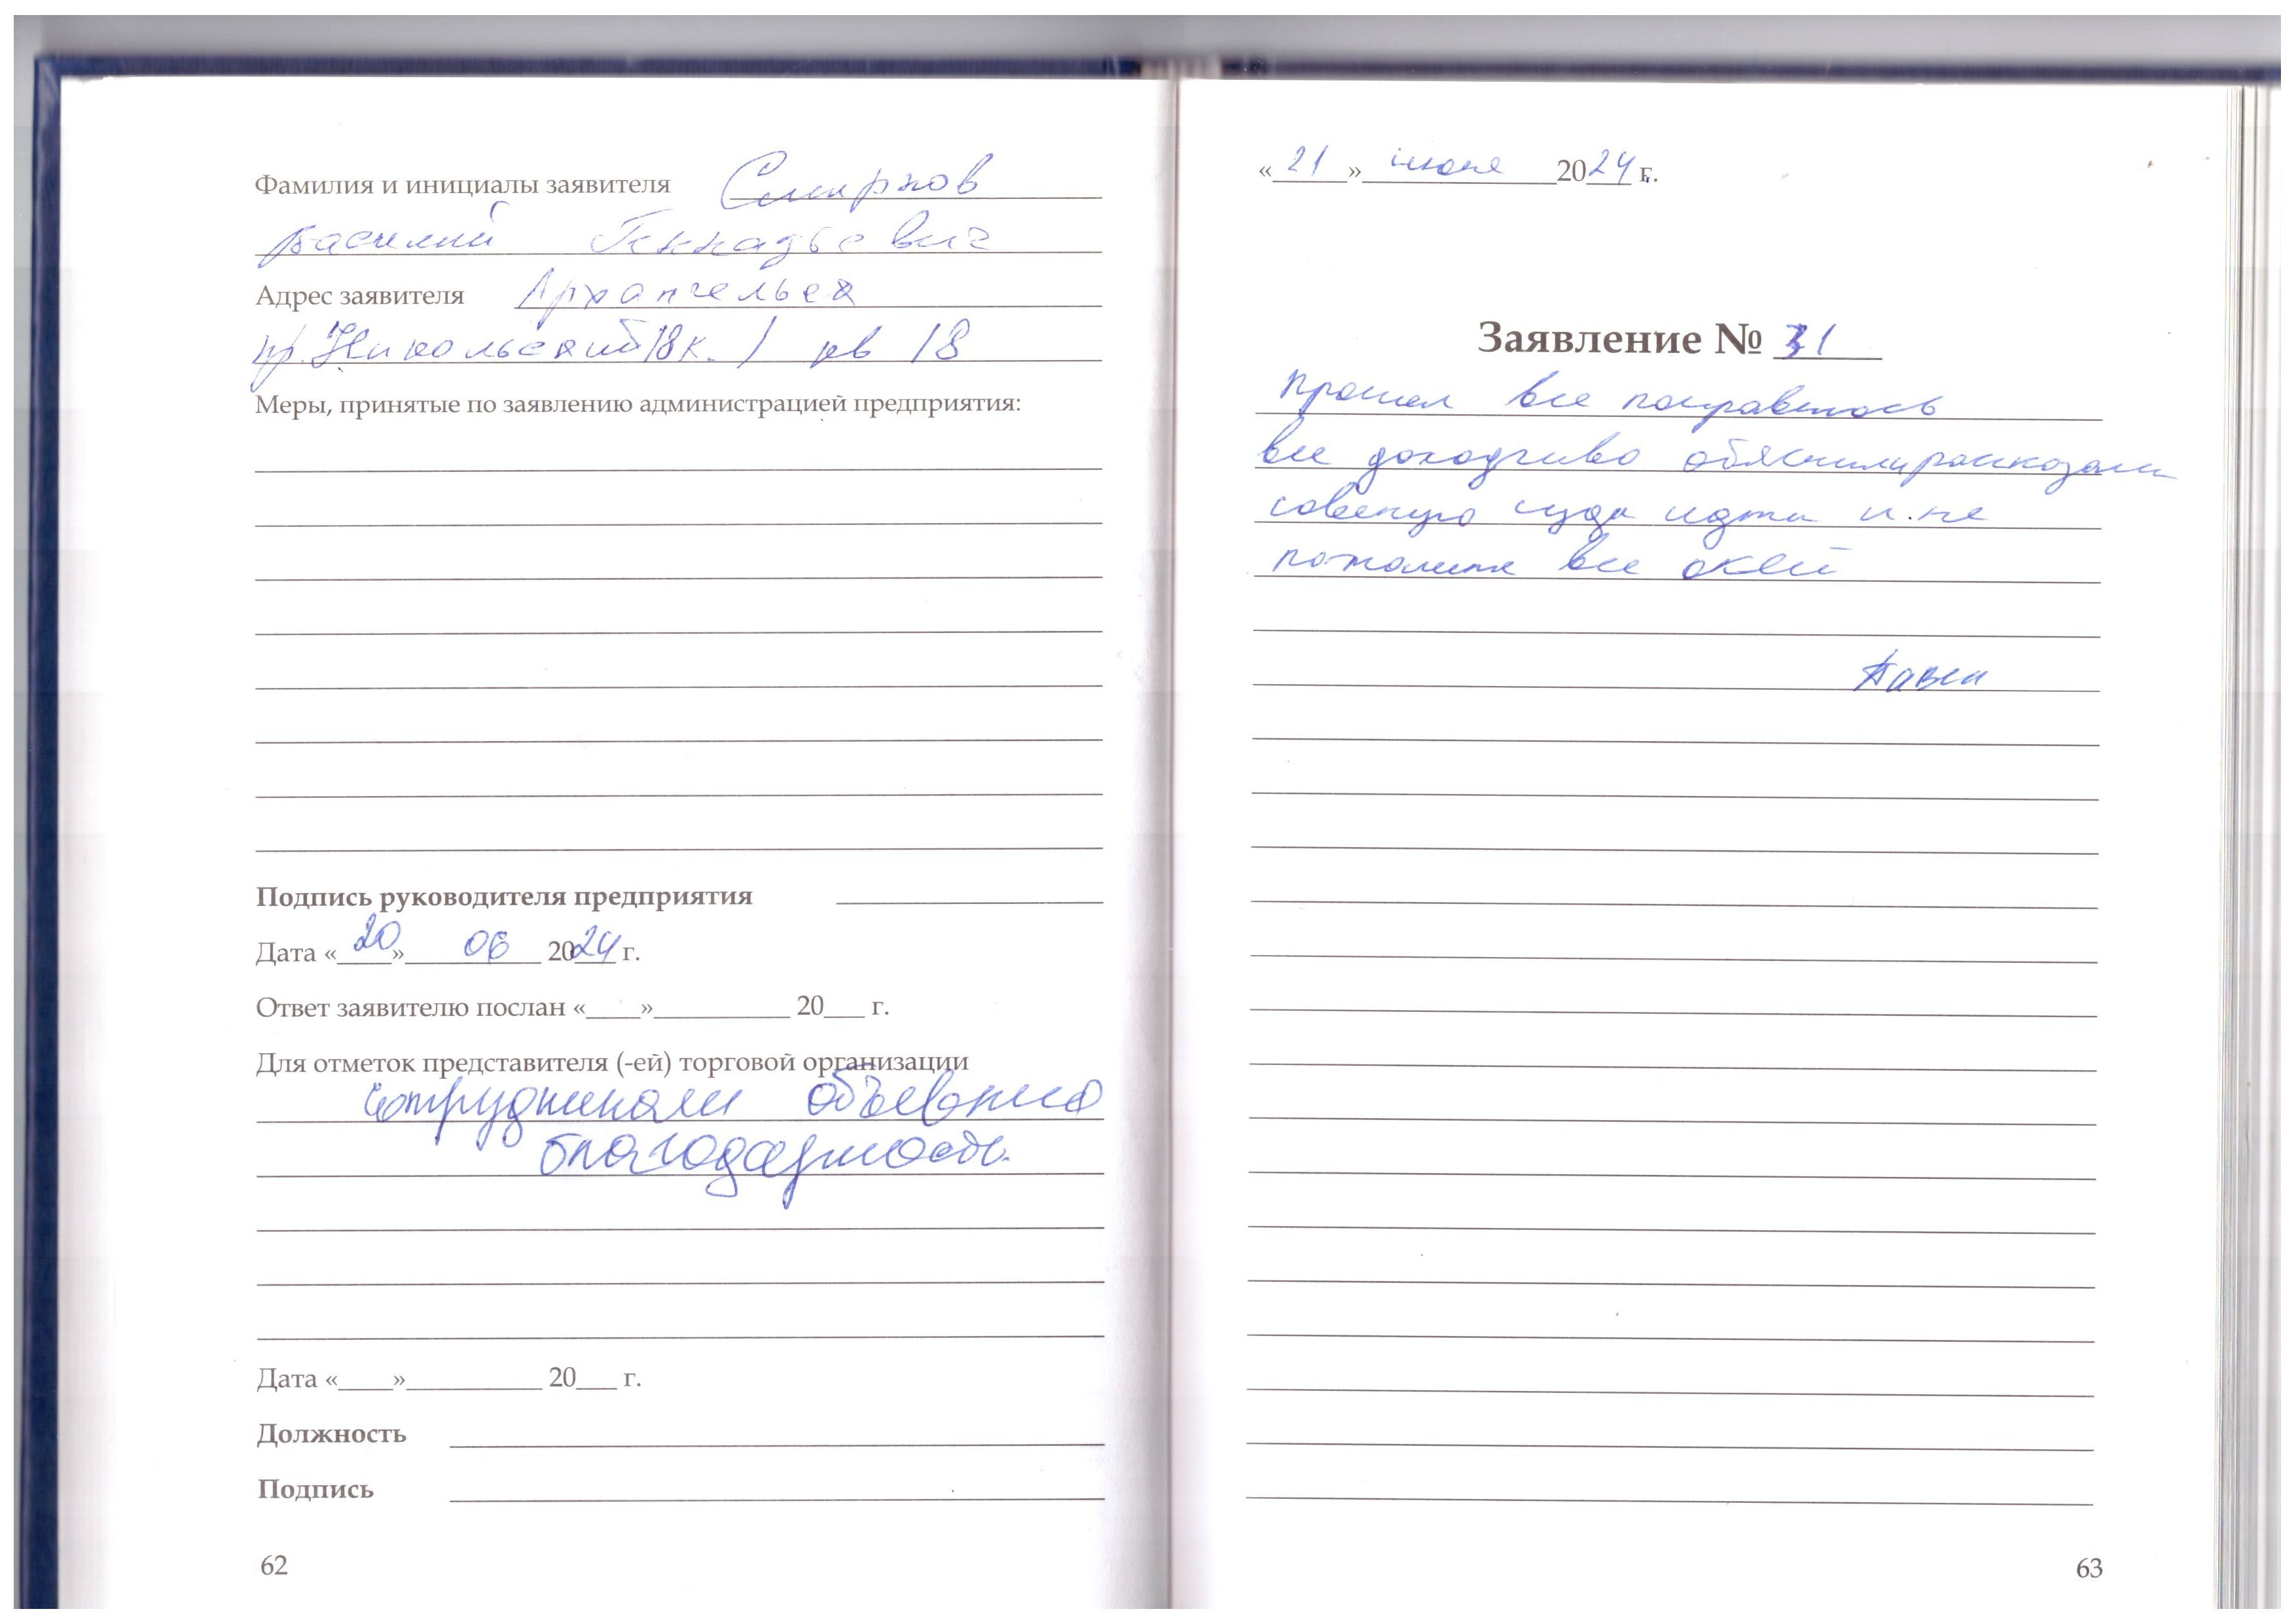 Фамилия и инициалы заявителя Смирнов
Василий Геннадьевич
Адрес заявителя Архангельск
пр. Никольский 18 к. 1 кв 18
Меры, принятые по заявлению администрацией предприятия:
Подпись руководителя предприятия
Дата «20» 06 2024 г.
Ответ заявителю послан «____»__________ 20___ г.
Для отметок представителя (-ей) торговой организации
Сотрудникам объявлена
благодарность.
Дата «____»__________ 20___ г.
Должность
Подпись
62
«21» июня 2024 г.
Заявление № 31
Прошел все понравилось
все доходчиво обяснили расказали
советую сюда идти и не
пожалеите все окей
Павел
63